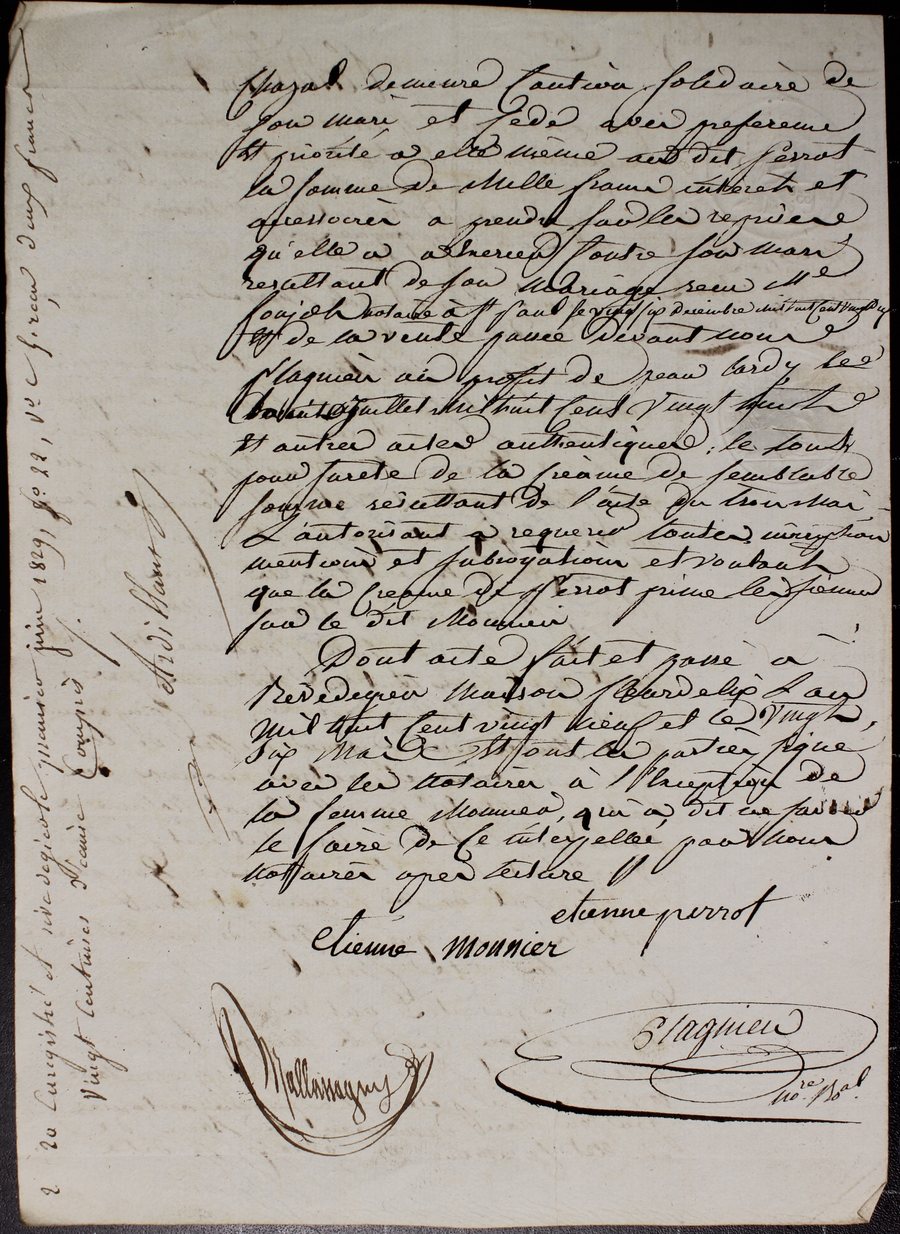 Chazal demeure Caution Solidaire de
Son mari et Cède avec preference
et priorité a elle même au dit Perrot
la somme de Mille francs intérets et
accessoires a prendre sur les reprises
qu'elle a a exercer Contre son mari
resultant de son mariage recu Me
notaire à St Paul le vingt six decembre mil huit Cent Vingt
et de la vente passée devant nous
Plagnieu au profit de jean Cardy le
juillet Mil huit Cent Vingt huit
et autres actes authentiques ; le tout
pour sureté de la Creance de semblable
somme résultant de l'acte du trois mai
L'autorisant a requerir toutes inscription
mentions et subrogations et voulant
que la Creance de Perrot prime les siennes
sur le dit Monnier
Dont acte fait et passé a
Rivedegier Maison fleurdelix L'an
Mil huit Cent vingt neuf et le Vingt
Six Mai Et ont les parties signé
avec les Notaires à l'Exception de
la femme Monnier, qui a dit ne savoir
le faire de Ce interpellée par Nous
Nottaires apres lecture
etienne perrot
etienne monnier
Mallassagny
Plagnieu
nore Roal
2 Enregistré et rivedegier le premier juin 1829, fo 22, Vo C. recu deux francs
Vingt Centimes dixieme Compris
Ardillard